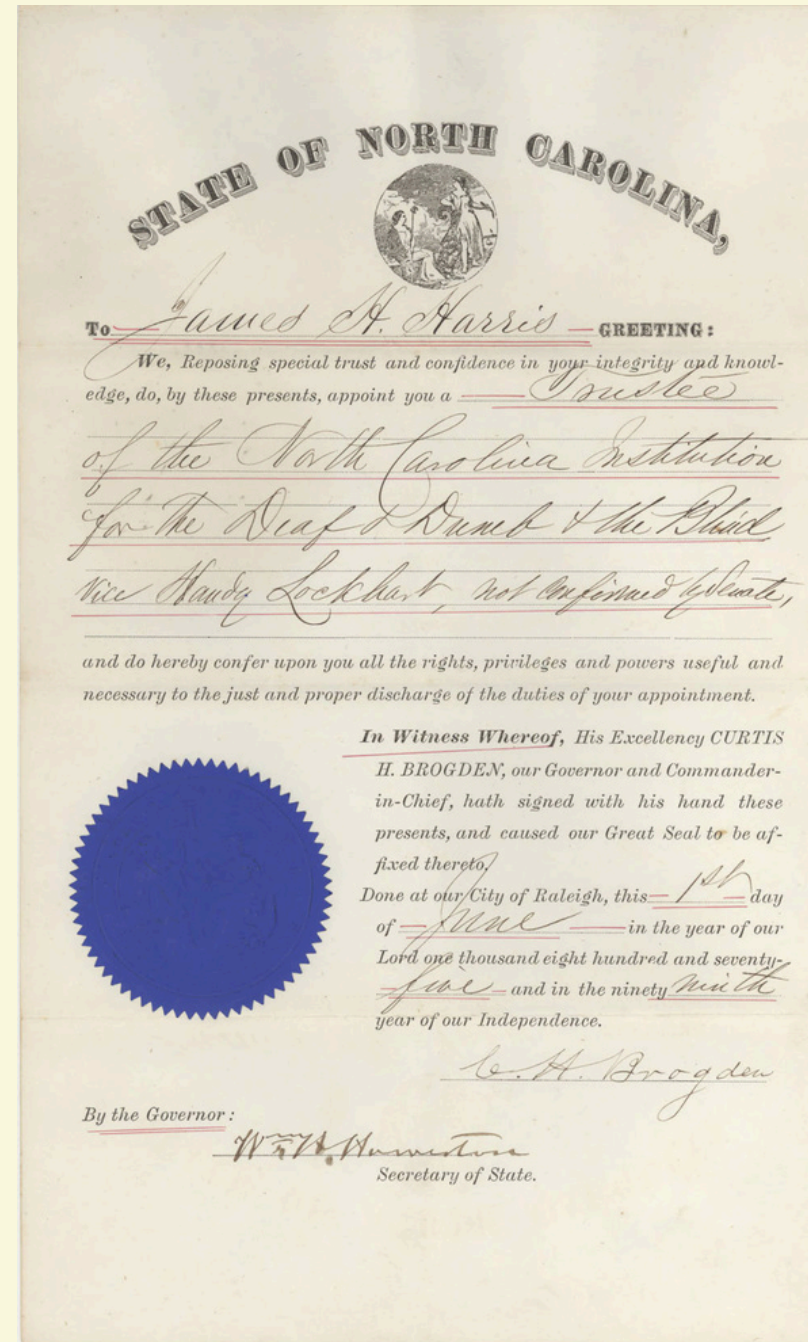 STATE OF NORTH CAROLINA,
To James H. Harris GREETING:
We, Reposing special trust and confidence in your integrity and knowl-
edge, do, by these presents, appoint you a Trustee
of the North Carolina Institution
for the Deaf & Dumb & the Blind
vice Handy Lockhart, not confirmed by Senate,
and do hereby confer upon you all the rights, privileges and powers useful and
necessary to the just and proper discharge of the duties of your appointment.
In Witness Whereof, His Excellency CURTIS
H. BROGDEN, our Governor and Commander-
in-Chief, hath signed with his hand these
presents, and caused our Great Seal to be af-
fixed thereto.
Done at our City of Raleigh, this 1st day
of June in the year of our
Lord one thousand eight hundred and seventy-
five and in the ninety ninth
year of our Independence.
C. H. Brogden
By the Governor:
Wm H. Howerton
Secretary of State.